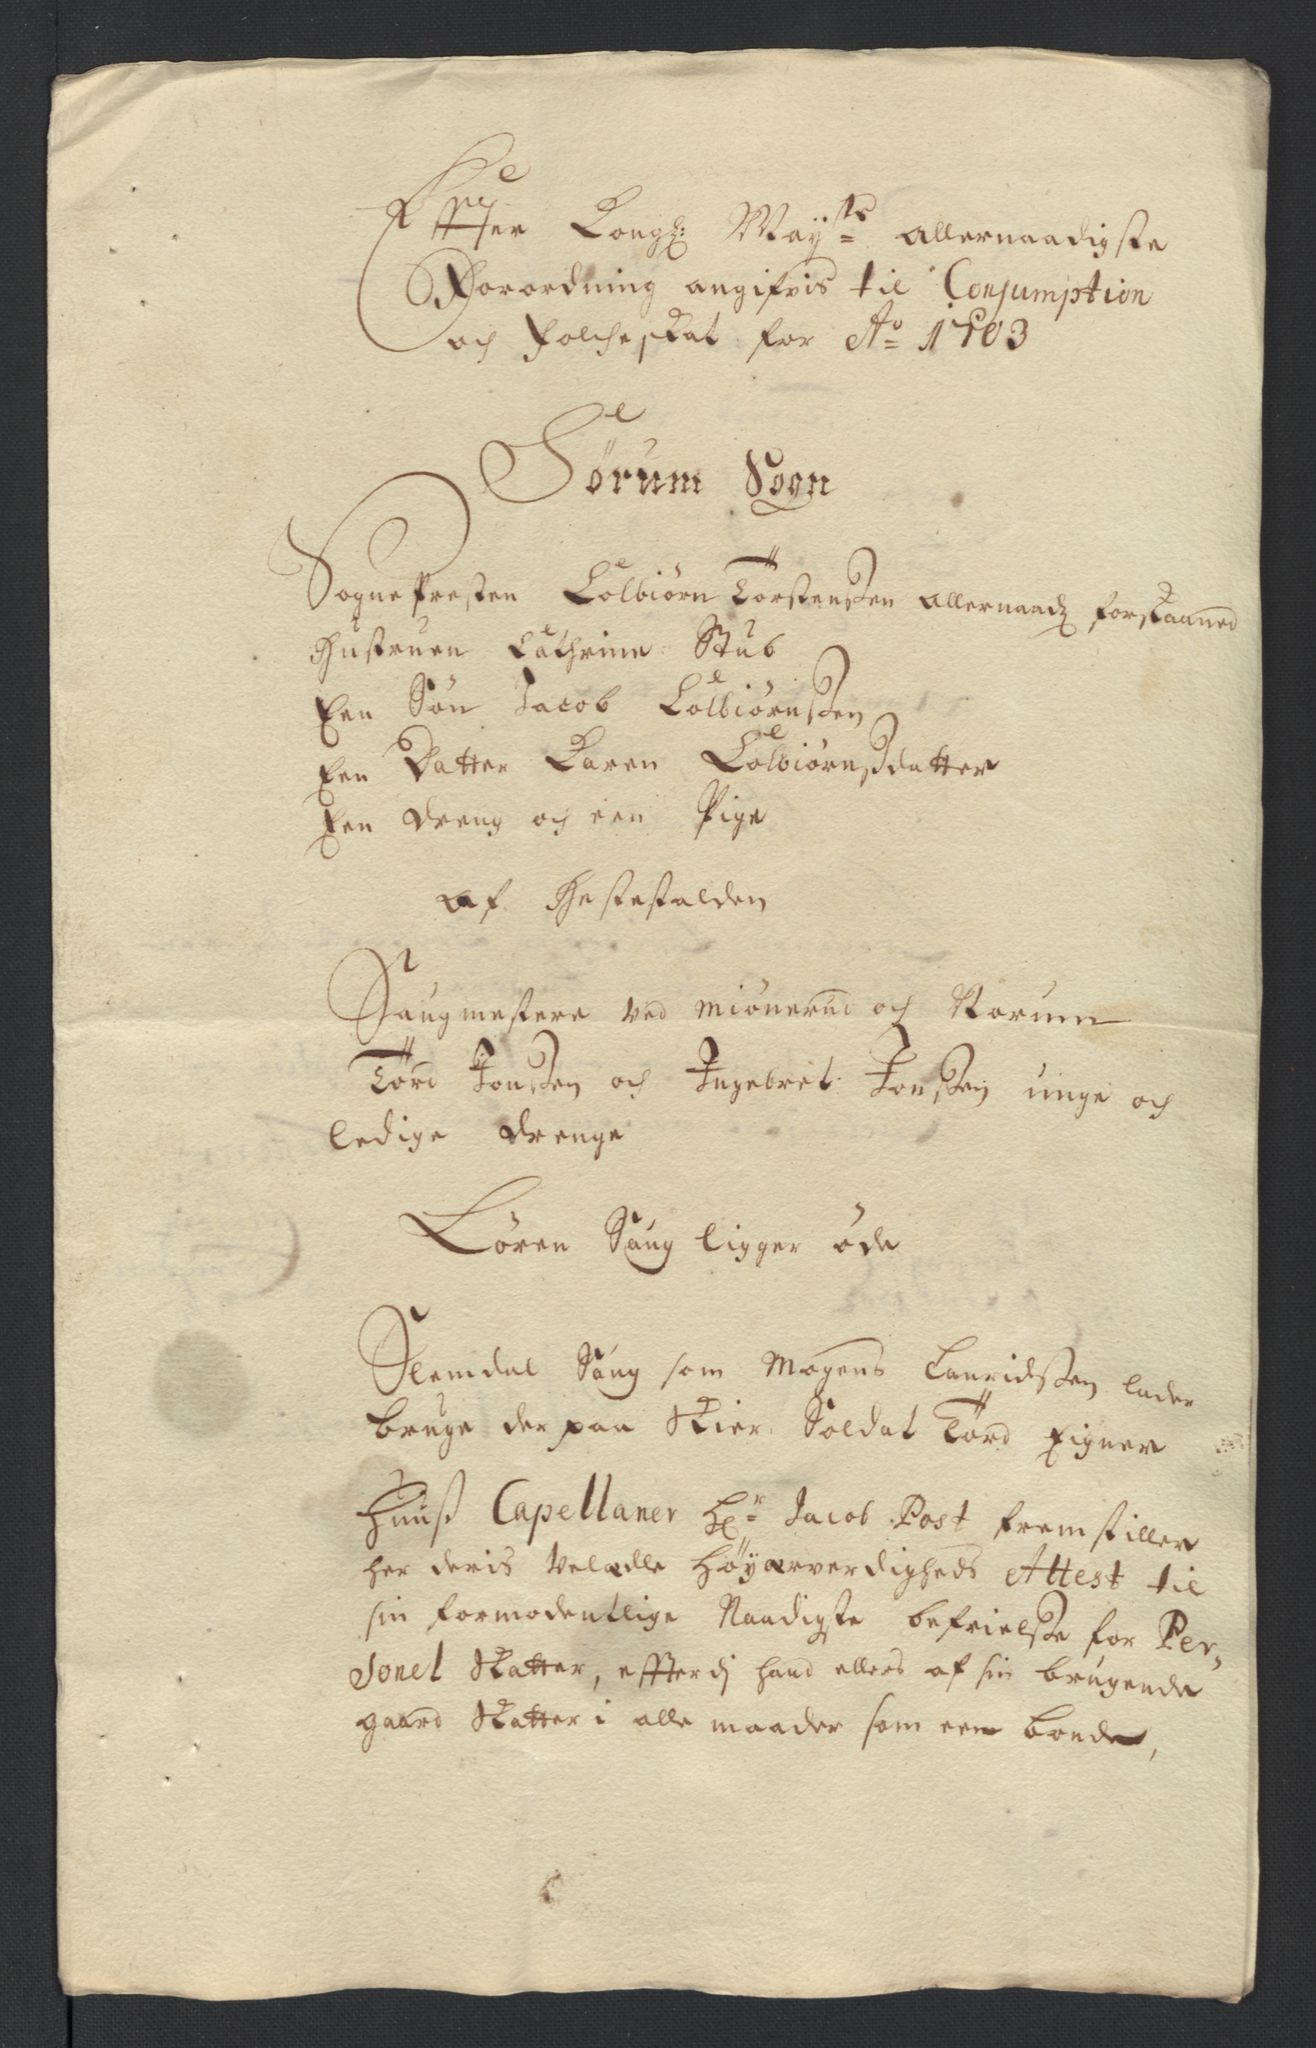 Effter Kongl: Mayts allernaadigste
Forordning angifvis til Consumption
och Folcheskat for Ao 1703
Sørum Sogn
Sognepresten Colbiørn Torstensen allernaadl forskaaned
Hustruen Cathrine Stub
Een Søn Jacob Colbiørnsen
Een Datter Karen Colbiørnsdatter
Een dreng och een Pige
af Hestestalden
Saugmestere ved Miønerud och Rorum
Tord Jonsen och Ingebret Jonsen unge och
ledige drenge
Løren Saug ligger øde
Slemdal Saug som Mogens Lauridsen lader
bruge der paa Skier Soldat Tord Eigner
Huus Capellaner Hr Jacob Post fremstiller
her deris Velædle Høyærverdigheds Attest til
sin formodentlige Naadigste befrielse for Per,
sonel Skatter, effterdj hand ellers af sin brugende
gaard Skatter i alle maader som een bonde,